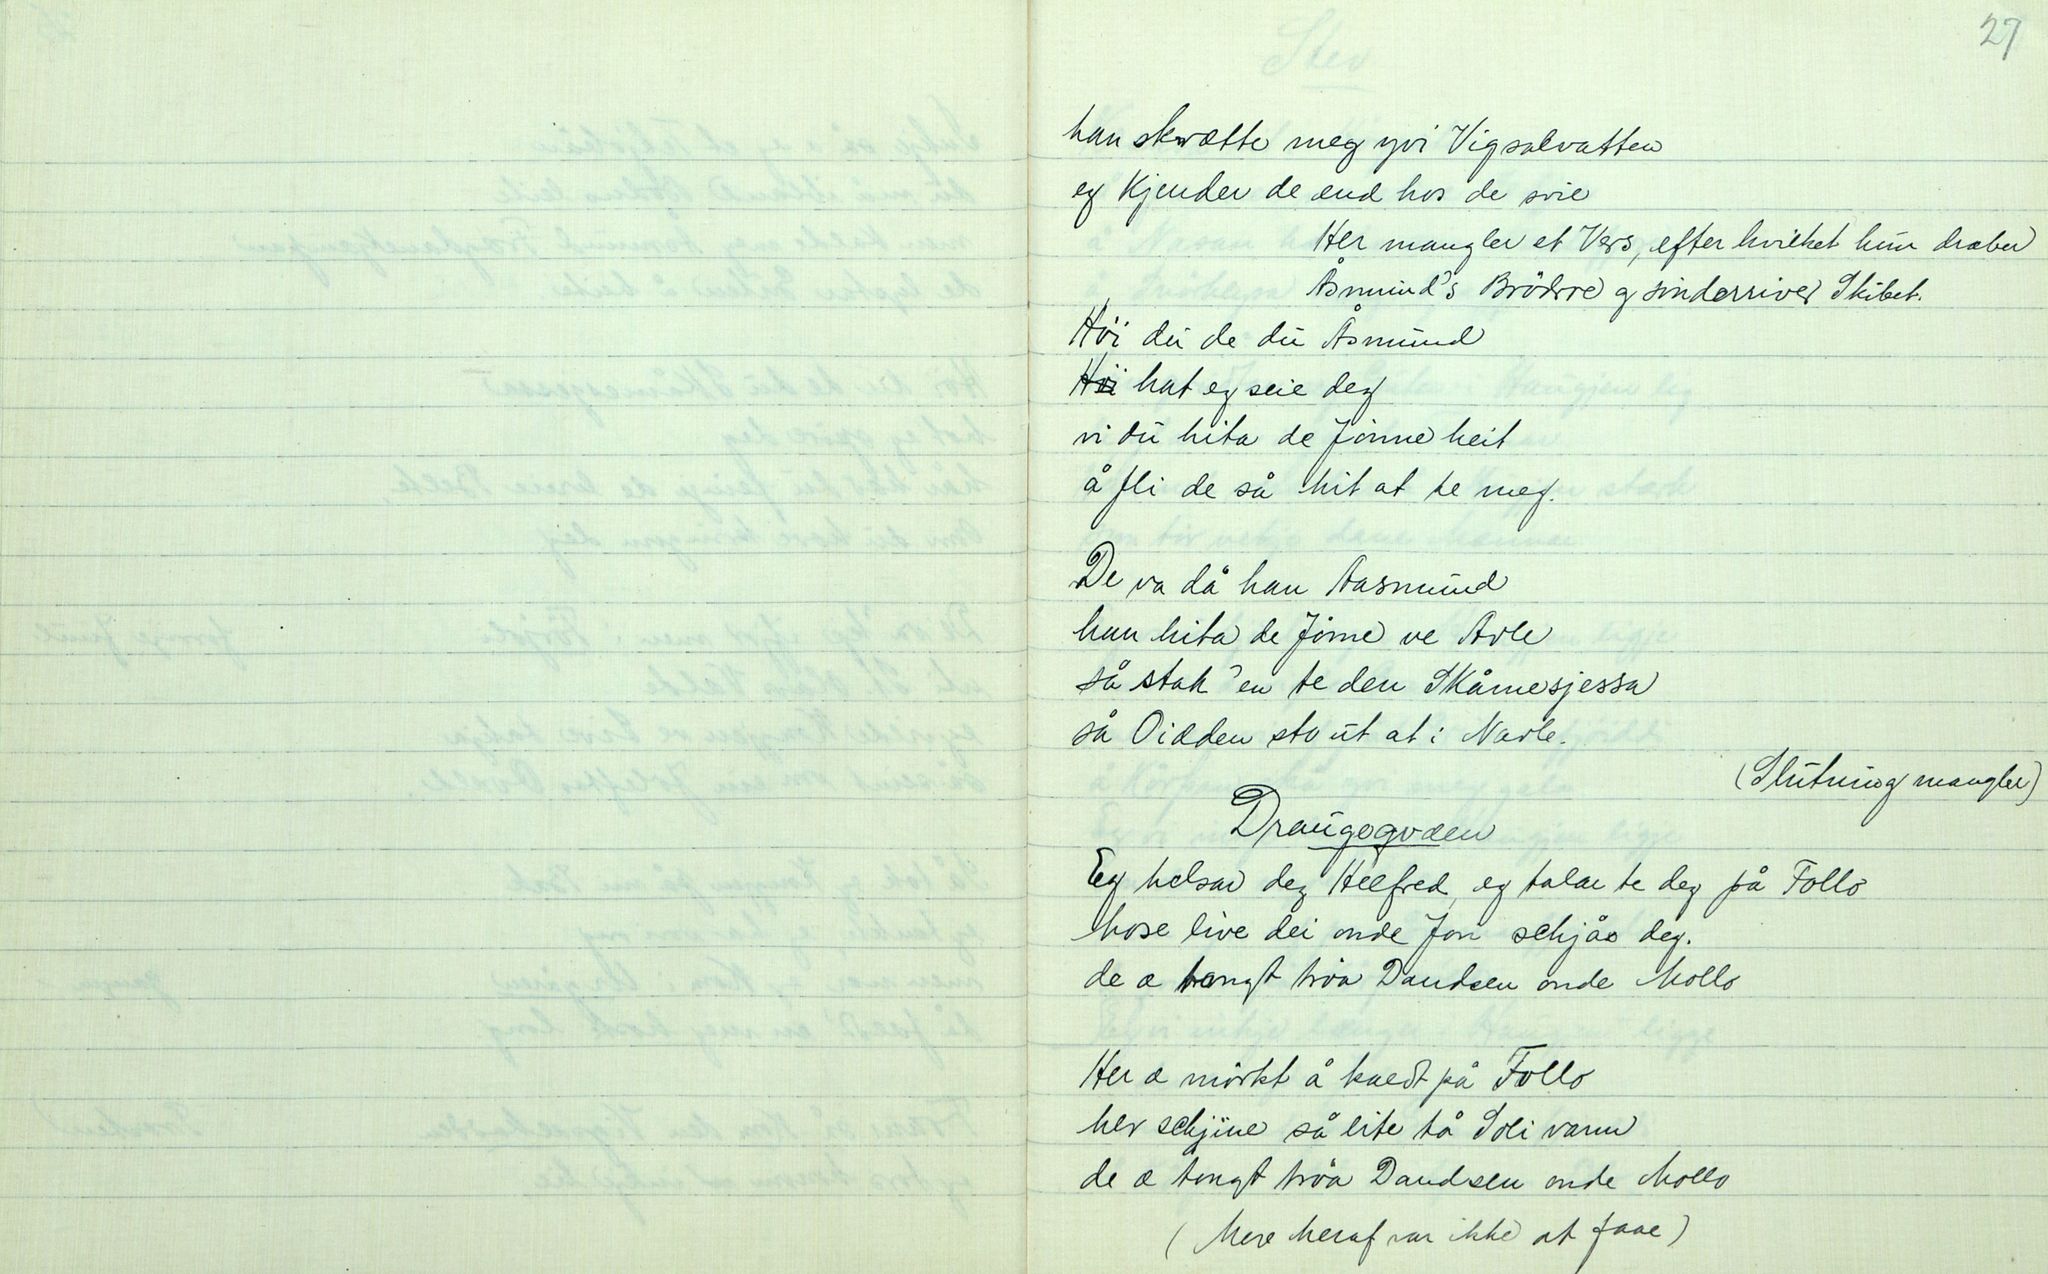 27
han skvætte meg yvi Vigsalvatten
eg Kjender de end hos de svie
Her mangler et Vers, efter hvilket hun dræber
Åsmund's Brödrre og sinderriver Skibet.
Höi du de du Åsmund
Höi hat eg seie deg
vi du hita de Jönne heit
å fli de så hit at te meg.
De va då han Aasmund
han hita de Jönne ve Avle
så stak 'en te den Skåmesjessa
så Oidden sto ut at i Navle.
(Slutning mangler)
Draugegvæen
Eg helsar deg Helfred, eg talar te deg på Follo
hose live dei onde Jon schjåo deg.
de æ tongt tröa Dandsen onde Mollo
Her æ mörkt å kaldt på Follo
her schjine så lite tå Soli varm
de æ tongt tröa Dandsen onde Mollo
(Mere heraf var ikke at faae)